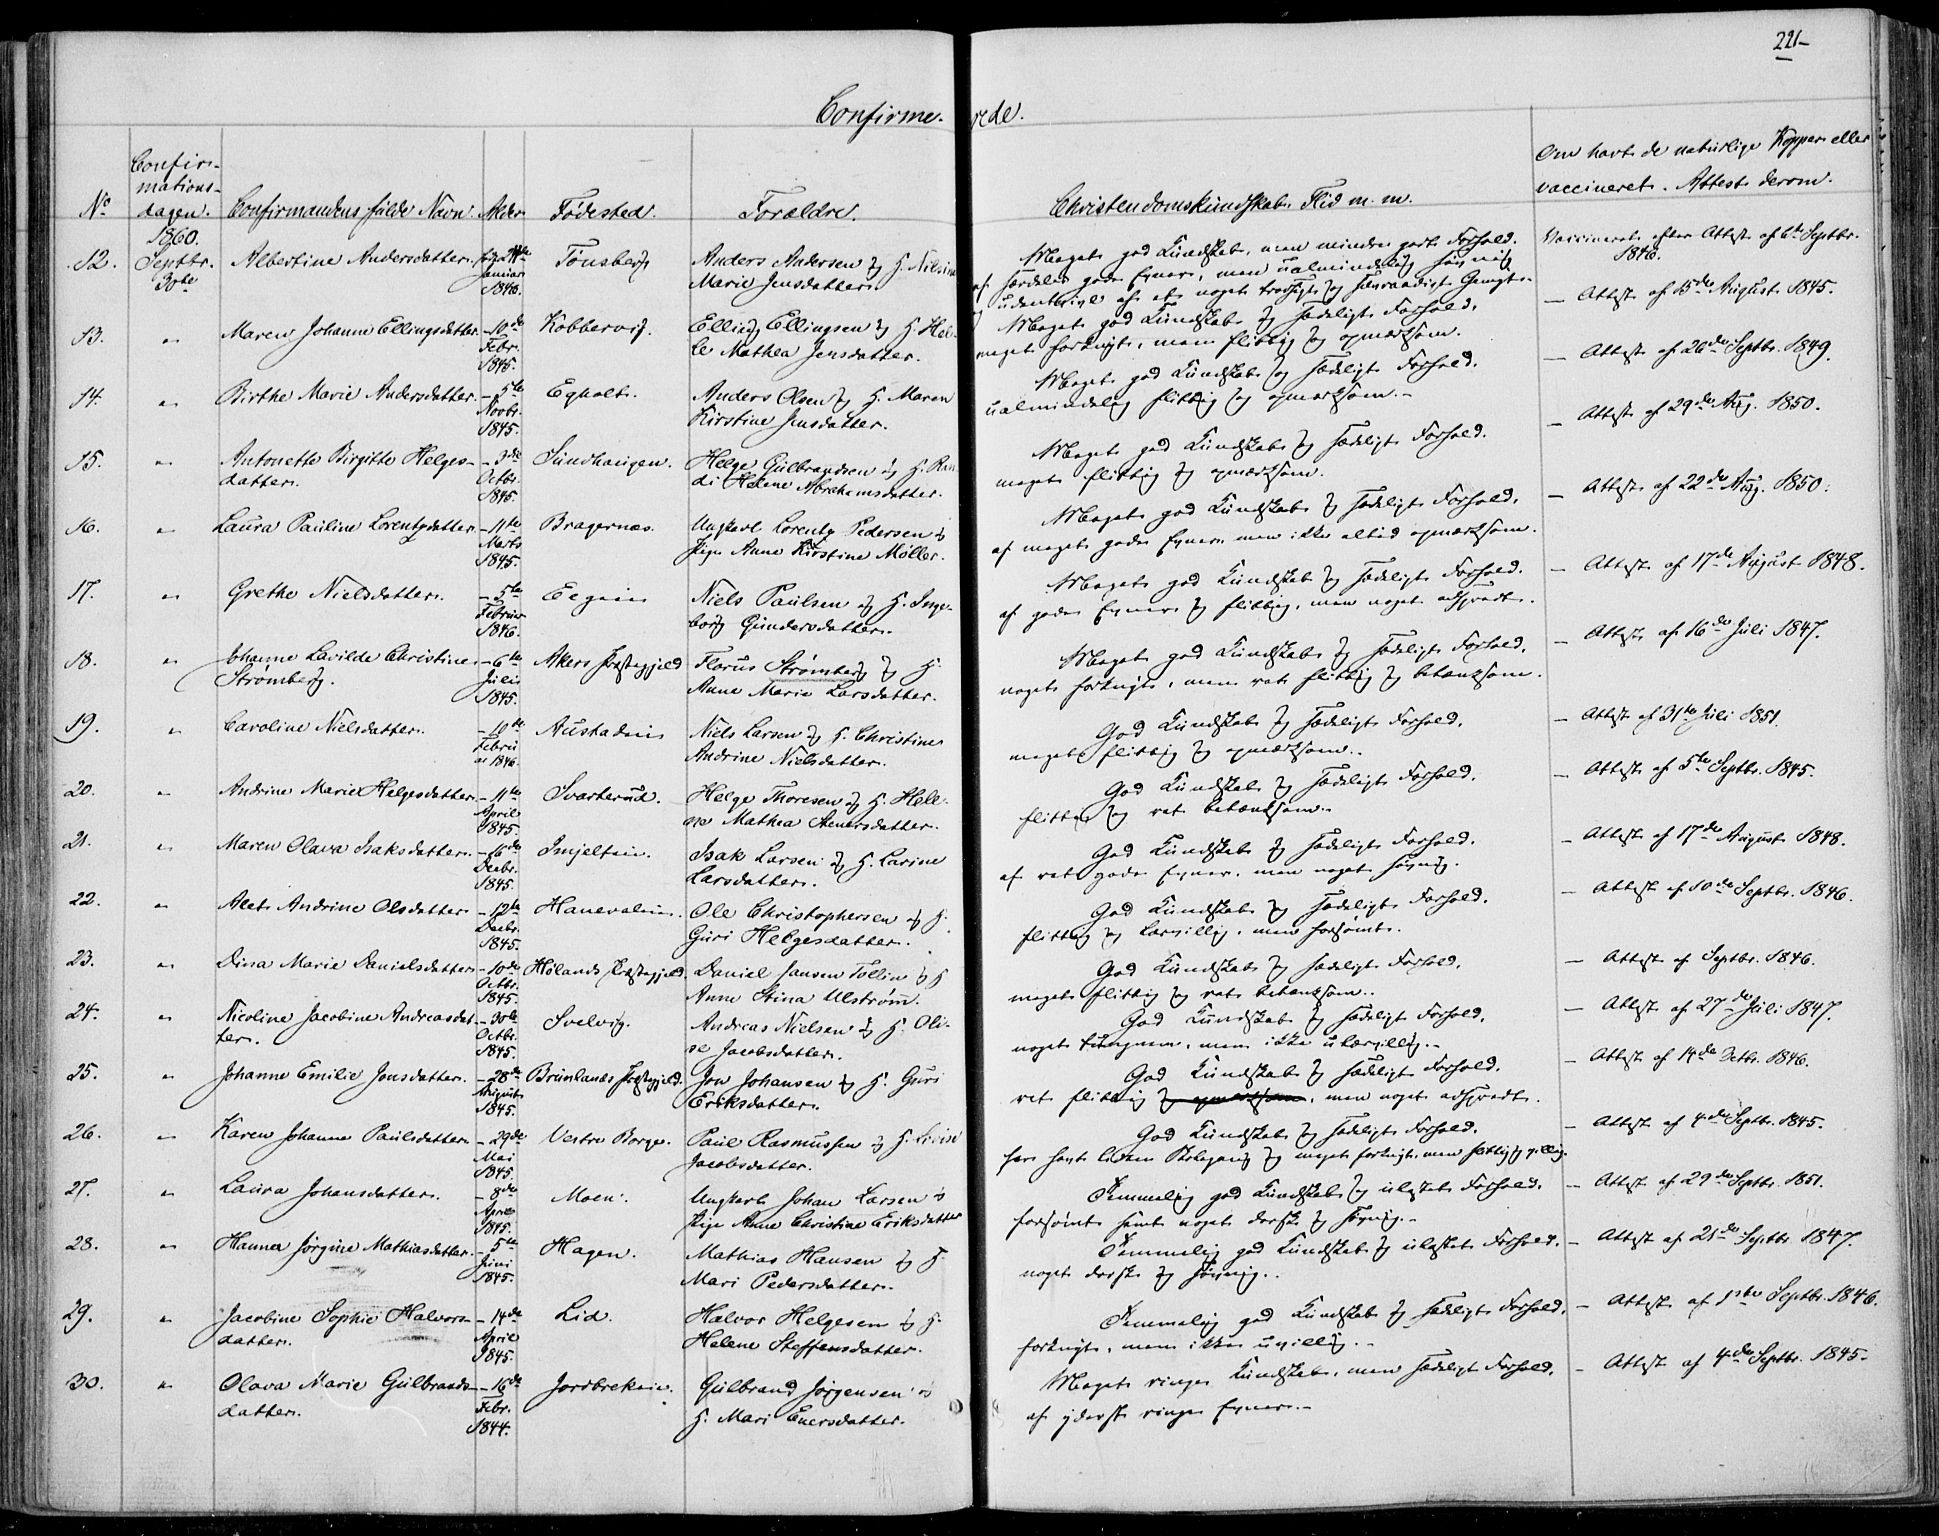 221-
Confirme- rede.
No
Confir-
mations-
dagen.
Confirmandens fulde Navn
Alder
Fødested.
Forældre.
Christendomskundskab, Flid m. m.
Om havt de naturlige Kopper eller
vaccineret. Attest derom.
1860.
12. Septbr. 30te Albertine Andersdatter. Januar 1846. Tønsberg Anders Andersen og H. Nilsine
Marie Jensdatter.
Meget god Kundskab, men mindre godt Forhold.
Vaccineret efter Attest af 6te Septbr.
1846.
13. " Maren Johanne Ellingsdatter - 10de Febr. 1845. Kobbervig. Elling Ellingsen og H. Hel-
le Mathea Jensdatter.
Meget god Kundskab og sædeligt Forhold,
meget forknyt, men flittig og opmærksom.
- Attest af 15de August 1845.
14. " Birthe Marie Andersdatter. - 5te Novbr. 1845. Egholt. Anders Olsen og H. Maren
Kirstine Jensdatter.
Meget god Kundskab og sædeligt Forhold,
ualmindelig flittig og opmærksom.-
- Attest af 26de Septbr. 1849.
15. " Antonette Birgitte Helges-
datter. - 3de Octbr. 1845. Sundhaugen. Helge Gulbrandsen og H. Ran
di Helene Abrahamsdatter.
Meget god Kundskab og sædeligt Forhold.
meget flittig og opmærksom.
- Attest af 29de Aug. 1850.
16. " Laura Pauline Lorentzdatter - 11te Marts 1845. Bragernæs. Ungkarl Lorentz Pedersen og
Pige Anne Kirstine Møller.
Meget god Kundskab og sædeligt Forhold,
af meget gode Evner men ikke altid opmærksom.
- Attest af 22de Aug. 1850.
17. " Grethe Nielsdatter. - 5te Februar 1846. Niels Paulsen og H. Inge-
borg Gundersdatter.
Meget god Kundskab og sædeligt Forhold.
af gode Evner og flittig, men noget adspredt.
- Attest af 17de August 1848.
18. " Johanne Lavilde Christine
Strømberg. - 6te Juli 1845. Akers Præstegjeld Florus Strømberg og H.
Anne Marie Larsdatter.
Meget god Kundskab og sædeligt Forhold,
noget forknyt, men ret flittig og betænksom.
- Attest af 16de Juli 1847.
19. " Caroline Nielsdatter. - 10de Febru
ar 1846. Austadeie Niels Larsen og H. Christine
Andrine Nielsdatter.
God Kundskab og sædeligt Forhold,
meget flittig og opmærksom.
- Attest af 31te Juli 1851.
20. " Andrine Marie Helgesdatter - 11te April 1845. Svarterud. Helge Thoresen og H. Hele-
ne Mathea Stenersdatter.
God Kundskab og sædeligt Forhold,
flittig og ret betænksom.
- Attest af 5te Septbr. 1845.
21. " Maren Olava Isaksdatter. - 16de Decbr. 1845. Isak Larsen og H. Larine
Larsdatter.
God Kundskab og sædeligt Forhold.
af ret gode Evner, men noget
- Attest af 17de August 1848.
22. " Alet Andrine Olsdatter - 12te Decbr. 1845. Hanevoldeie. Ole Christophersen og H.
Guri Helgesdatter.
God Kundskab og sædeligt Forhold.
flittig og lærvillig, men forsømt.
- Attest af 10de Septbr. 1846.
23. " Dina Marie Danielsdatter - 10de Octbr. 1845. Hølands Præstegjeld. Daniel Jansen Tollin og H
Anne Stina Ulstrøm.
God Kundskab og sædeligt Forhold,
meget flittig og ret betænksom.
- Attest af Septbr. 1846.
24. " Nicoline Jacobine Andreasdat-
ter. - 30te Octbr. 1845. Svelvig. Andreas Nielsen og H. Oli-
ne Jacobsdatter.
God Kundskab og sædeligt Forhold.
noget tungnem, men ikke ulærvillig.-
- Attest af 27de Juli 1847.
25. " Johanne Emilie Jonsdatter. - 28de August 1845. Brunlanæs Præstegjeld. Jon Johansen og H. Guri
Eriksdatter.
God Kundskab og sædeligt Forhold.
ret flittig og opmærksom, men noget adspredt.
- Attest af 14de Octbr. 1846.
26. " Karen Johanne Paulsdatter - 29de Mai 1845. Vestre Borge. Paul Rasmussen og H. Lovise
Jacobsdatter.
God Kundskab og sædeligt Forhold.
har havt liden Skolegang og meget forknyt, men flittig og villig.
- Attest af 4de Septbr. 1845.
27. " Laura Johansdatter. - 8de April 1845. Moen. Ungkarl Johan Larsen og
Pige Anne Christine Eriksdatter
Temmelig god Kundskab og ulastet Forhold.
forsømt samt noget dorsk og
- Attest af 29de Septbr. 1851.
28. " Hanna Jørgine Mathiasdatter. - 5te Juni 1845. Hagen. Mathias Hansen og H.
Mari Pedersdatter.
Temmelig god Kundskab og ulastet Forhold.
noget dorsk og
- Attest af 21de Septbr. 1847.
29. " Jacobine Sophie Halvors-
datter. - 14de April 1845. Lid. Halvor Helgesen og H.
Helene Steffensdatter.
Temmelig god Kundskab og sædeligt Forhold,
forknyt, men ikke uvillig.-
- Attest af 1ste Septbr. 1846.
30. " Olava Marie Gulbrands-
datter. - 16de Febr. 1844. Jordbrekeie. Gulbrand Jørgensen og
H. Mari Enersdatter.
Meget ringe Kundskab, men sædeligt Forhold,
af yderst ringe Evner.-
- Attest af 4de Septbr. 1845.